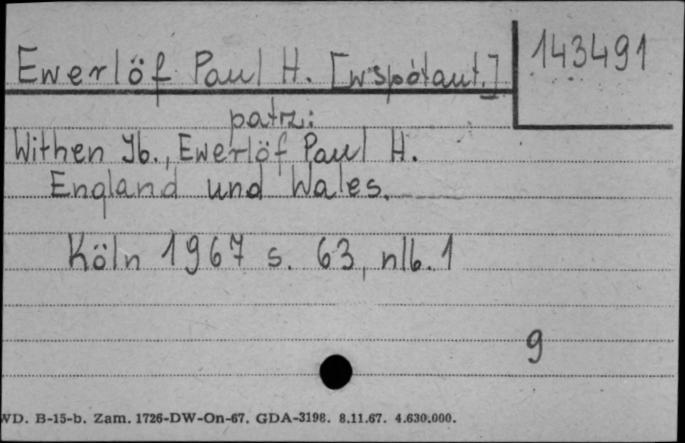 Ewerlöf Paul H. [współaut.]
143491
patrz:
Withen Yb., Ewerlöf Paul H.
England und Wales.
Köln 1967 s. 63, nlb. 1
9
WD. B-15-b. Zam. 1726-DW-On-67. GDA-3198. 8.11.67. 4.630.000.